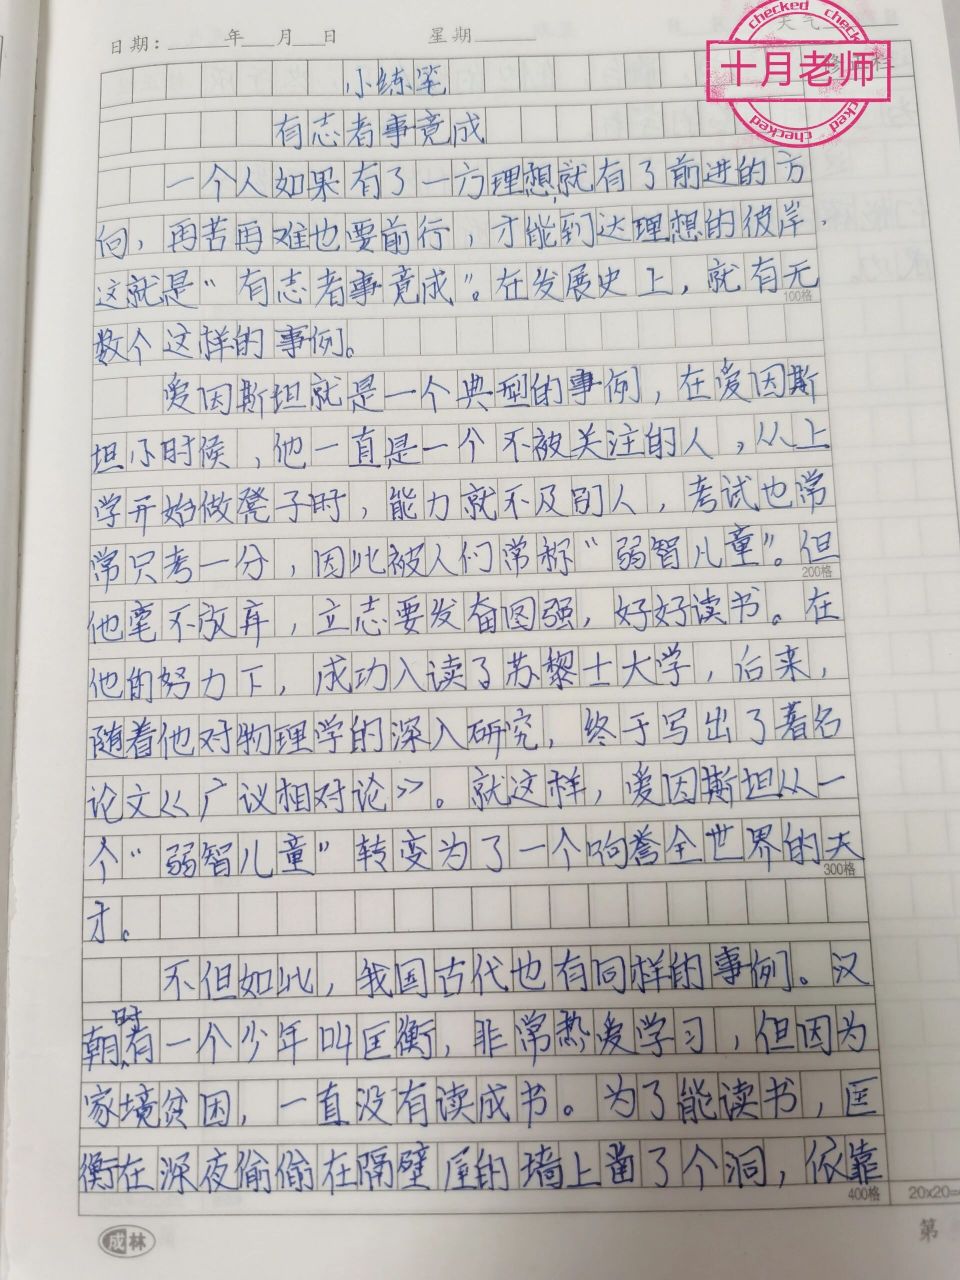 日期：年 月 日 星期 天气
checked
十月老师
checked
checked
小练笔
有志者事竟成
一个人如果有了一方理想,就有了前进的方
向，再苦再难也要前行，才能到达理想的彼岸.
这就是“有志者事竟成”。在发展史上，就有无
100格
数个这样的事例。
爱因斯坦就是一个典型的事例，在爱因斯
坦小时候，他一直是一个不被关注的人，从上
学开始做凳子时，能力就不及别人，考试也常
常只考一分，因此被人们常称“弱智儿童”。但
200格
他毫不放弃，立志要发奋图强，好好读书。在
他的努力下，成功入读了苏黎士大学，后来，
随着他对物理学的深入研究，终于写出了著名
论文《广议相对论》。就这样，爱因斯坦从一
个“弱智儿童”转变为了一个响誉全世界的天
300格
才。
不但如此，我国古代也有同样的事例。汉
朝时有一个少年叫匡衡，非常热爱学习，但因为
家境贫困，一直没有读成书。为了能读书，匡
衡在深夜偷偷在隔壁屋的墙上凿了个洞，依靠
400格
20x20=
成林
第